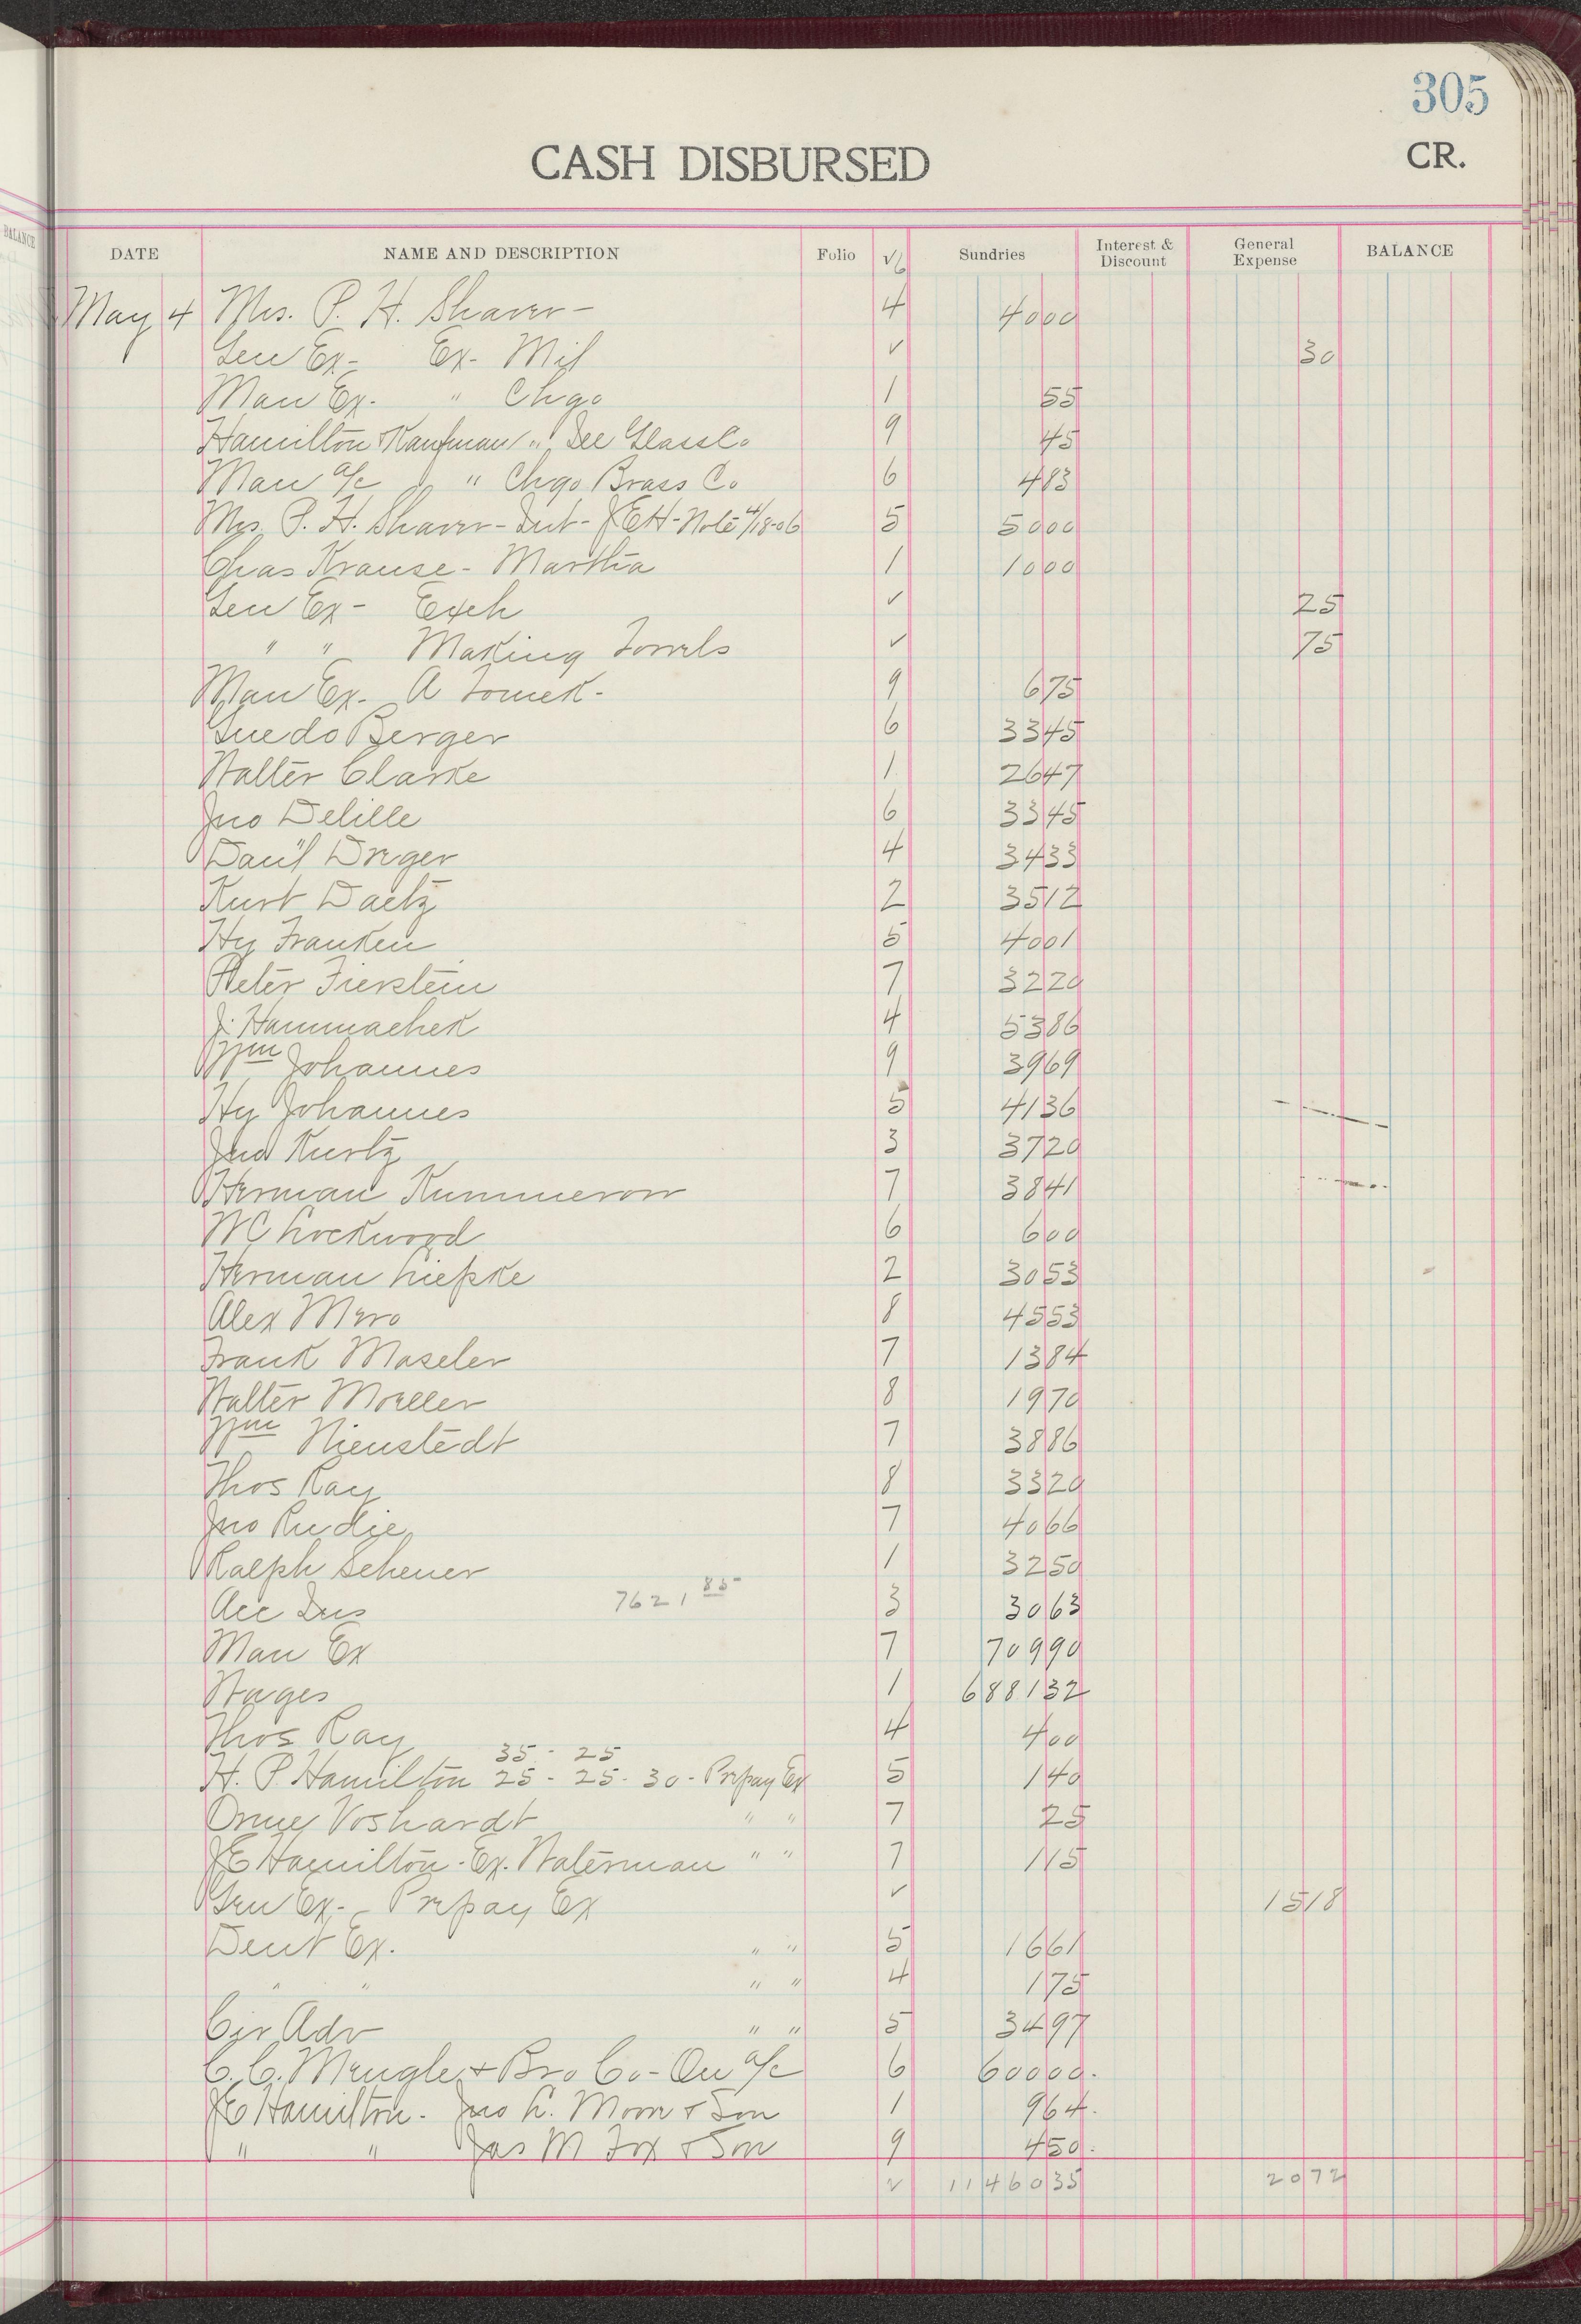 305
CASH DISBURSED
CR.
BALANCE
DATE NAME AND DESCRIPTION Folio V6 Sundries Interest & Discount General Expense BALANCE
May 4 Mrs. P. H. Shaver - 4 4000
Gen Ex - Ex - Mil ✓ 30
Man Ex. " Chgo 1 55
Hamilton Kaufman " Glass Co 9 45
Man a/c " Chgo Brass Co 6 483
Mrs. P. H. Shaver - Int - JEH - Note 4/18-06 5 5000
Chas Krause - Martha 1 1000
Gen Ex - Exch ✓ 25
" " Making Towels ✓ 75
Man Ex. A Tomek - 9 675
Guedo Berger 6 3345
Walter Clarke 1 2647
Jno Delille 6 3345
Dan'l Dreger 4 3433
Kurt Daetz 2 3512
Hy Franken 5 4001
Peter Fierstein 7 3220
J. Hammachek 4 5386
Wm Johannes 9 3969
Hy Johannes 5 4136
Jno Kurtz 3 3720
Herman Kummerow 7 3841
WC Lockwood 6 600
Herman Liepke 2 3053
Alex Mero 8 4553
Frank Maseler 7 1384
Walter Moeller 8 1970
Wm Nienstedt 7 3886
Thos Ray 8 3320
Jno Rudie 7 4066
Ralph Scheuer 1 3250
Acc Ins 7621 85 3 3063
Man Ex 7 70990
Wages 1 688132
Thos Ray 4 400
35 - 25
H. P. Hamilton 25 - 25 - 30 - Prepay Ex 5 140
Orme Voshardt " " 7 25
JE Hamilton - Ex. Waterman " " 7 115
Gen Ex - Prepay Ex ✓ 1518
Dent Ex. " " 5 1661
" " " " 4 175
Cir Adv " " 5 3497
C. C. Mengle & Bro Co - On a/c 6 60000.
JE Hamilton - Jno L. Moon & Son 1 964.
" " Jas M Fox & Son 9 450.
✓ 1146035 2072